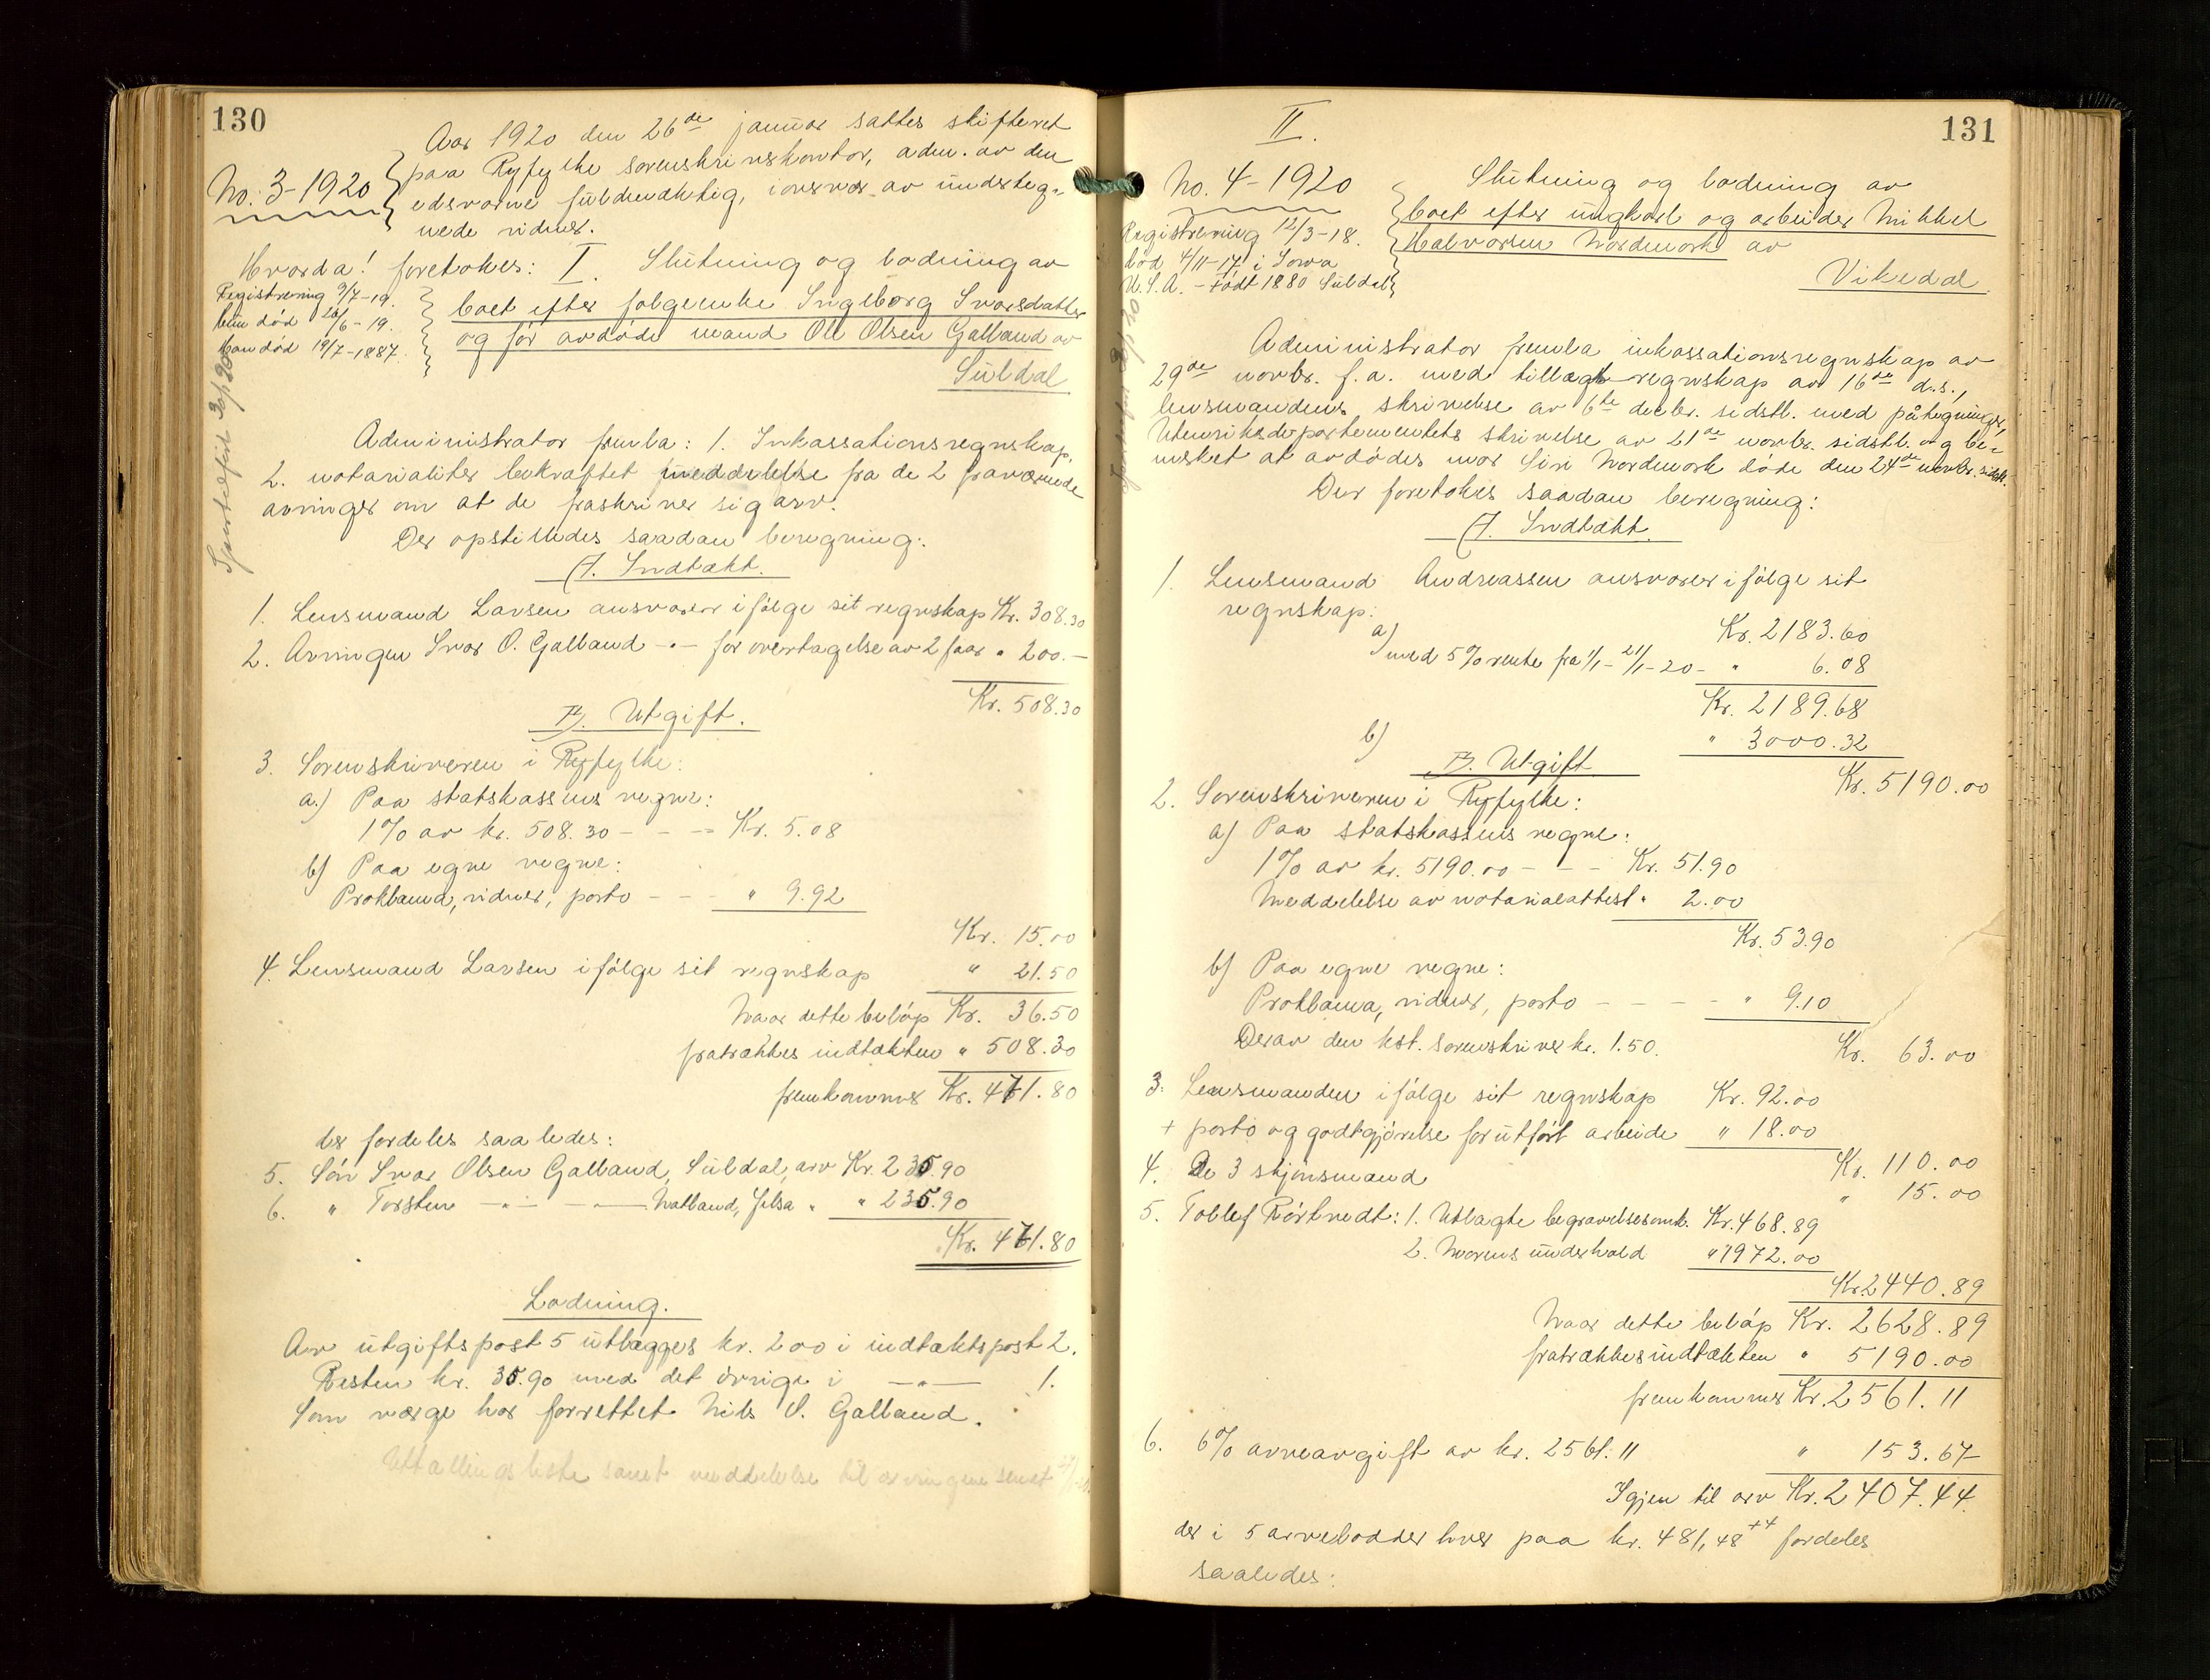 130
Aar 1920 den 26de januar sattes skifteret
paa Ryfylke sorenskriverkontor, adm. av den
No. 3-1920
edsvorne fuldmæktig, i overvær av underteg-
nede vidner.
Hvorda! foretokes: I. Slutning og lodning av
Registrering 9/7-19.
hun død 26/6-19.
Man død 19/7-1887.
boet efter folgeenke Ingeborg Ivarsdatter
og før avdøde mand Ole Olsen Galland av
Suldal
Administrator fremla: 1. Inkassationsregnskap,
2. notarialiter bekræftet meddelelse fra de 2 fraværende
arvinger om at de fraskriver sig arv.
Der opstilledes saadan beregning:
A. Indtækt.
1. Lensmand Larsen ansvarer ifølge sit regnskap Kr. 308.30
2. Arvingen Ivar O. Galland -"- for overtagelse av 2 faar " 200.-
Kr. 508.30
B. Utgift.
3. Sorenskriveren i Ryfylke:
a.) Paa statskassens regne:
1% av kr. 508.30 - - - Kr. 5.08
b) Paa egne regne:
Proklama, vidner, porto - - - " 9.92
Kr. 15.00
4. Lensmand Larsen ifølge sit regnskap " 21.50
Naar dette beløp Kr. 36.50
fratrækkes indtækten " 508.30
fremkommer Kr. 471.80
der fordeles saaledes:
5. Søn Ivar Olsen Galland, Suldal, arv Kr. 235.90
6. " Torsten -"- -"- Natland, Jelsa " " 235.90
Kr. 471.80
Lodning.
Av utgiftspost 5 utlægges kr. 200 i indtæktspost 2.
Resten kr. 35.90 med det øvrige i -"- 1.
Som værge har forrettet Nils S. Galland.
Utallingsliste samt meddelelse til arvingene sendt
131
II.
No. 4-1920
Slutning og lodning av
boet efter ungkarl og arbeider Mikkel
Halvorsen Nordmork av
Vikedal
Registrering 12/3-18.
død 4/11-17 i Iowa
U.S.A. - Født 1880 Suldal
Administrator fremla inkassationsregnskap av
29de novbr. f.a. med tillægsregnskap av 16de d.s.,
lensmandens skrivelse av 6te decbr. sidstl. med påtegninger,
Utenriksdepartementets skrivelse av 21de novbr. sidstl. og be-
merket at avdødes mor Siri Nordmork døde den 24de novbr. sidstl.
Der foretokes saadan beregning:
A. Indtækt.
1. Lensmand Andreassen ansvarer ifølge sit
regnskap:
a) Kr. 2183.60
med 5% rente fra 1/1-21/1-20 - " 6.08
Kr. 2189.68
b) " 3000.32
B. Utgift
Kr. 5190.00
2. Sorenskriveren i Ryfylke:
a) Paa statskassens regne:
1% av kr. 5190.00 - - - Kr. 51.90
Meddelelse av notarialattest " 2.00
Kr. 53.90
b) Paa egne regne:
Proklama, vidner, porto - - - - " 9.10
Derav den kst. sorenskriver kr. 1.50.
Kr. 63.00
3. Lensmanden ifølge sit regnskap Kr. 92.00
+ porto og godtgjørelse for utført arbeide " 18.00
Kr. 110.00
4. De 3 skjønsmænd " 15.00
5. Tollef Rørtvedt: 1. Utlagte begravelsesomk. Kr. 468.89
2. Morens underhold " 1972.00
Kr. 2440.89
Naar dette beløp Kr. 2628.89
fratrækkes indtækten " 5190.00
fremkommer Kr. 2561.11
6. 6% arveavgift av kr. 2561.11 " 153.67
Igjen til arv Kr. 2407.44
der i 5 arvelodder hver paa kr. 481,48 +4 fordeles
saaledes: